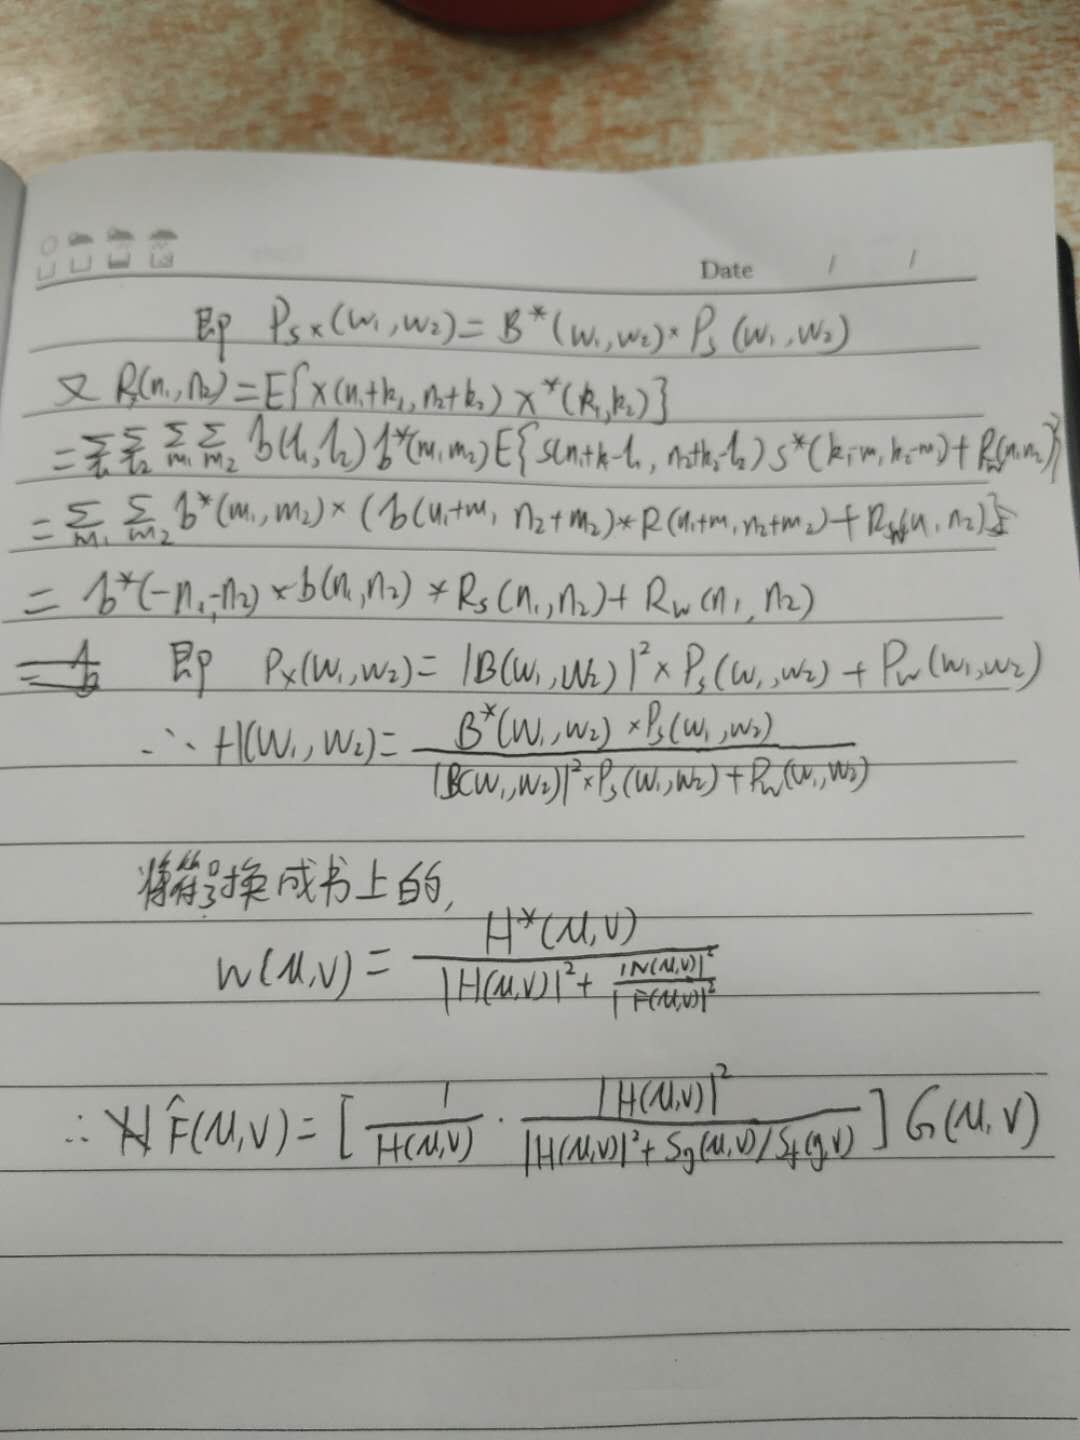 Date / /
即 Psx(w₁,w₂)= B*(w₁,w₂)× Ps(w₁,w₂)
又 Rx(n₁,n₂)=E{x(n₁+k₁,n₂+k₂) x*(k₁,k₂)}
=ΣΣΣΣ b(l₁,l₂)b*(m₁,m₂)E{s(n₁+k-l₁, n₂+k₂-l₂) s*(k₁-m, k₂-m₂)+Rw(n₁,n₂)}
= Σ Σ b*(m₁,m₂)×(b(n₁+m₁ n₂+m₂)*R(n₁+m,n₂+m₂)+
= b*(-n₁,-n₂)*b(n₁,n₂)*Rs(n₁,n₂)+Rw(n₁,n₂)
即 Px(w₁,w₂)= |B(w₁,w₂)|²×Ps(w₁,w₂)+Pw(w₁,w₂)
∴ H(w₁,w₂)= B*(w₁,w₂)×Ps(w₁,w₂) / |B(w₁,w₂)|²×Ps(w₁,w₂)+Pw(w₁,w₂)
将符号换成书上的,
W(u,v)= H*(u,v) / |H(u,v)|²+ |N(u,v)|²/|F(u,v)|²
∴ F̂(u,v)=[ 1/H(u,v) · |H(u,v)|² / |H(u,v)|²+Sg(u,v)/Sf(g,v) ] G(u,v)